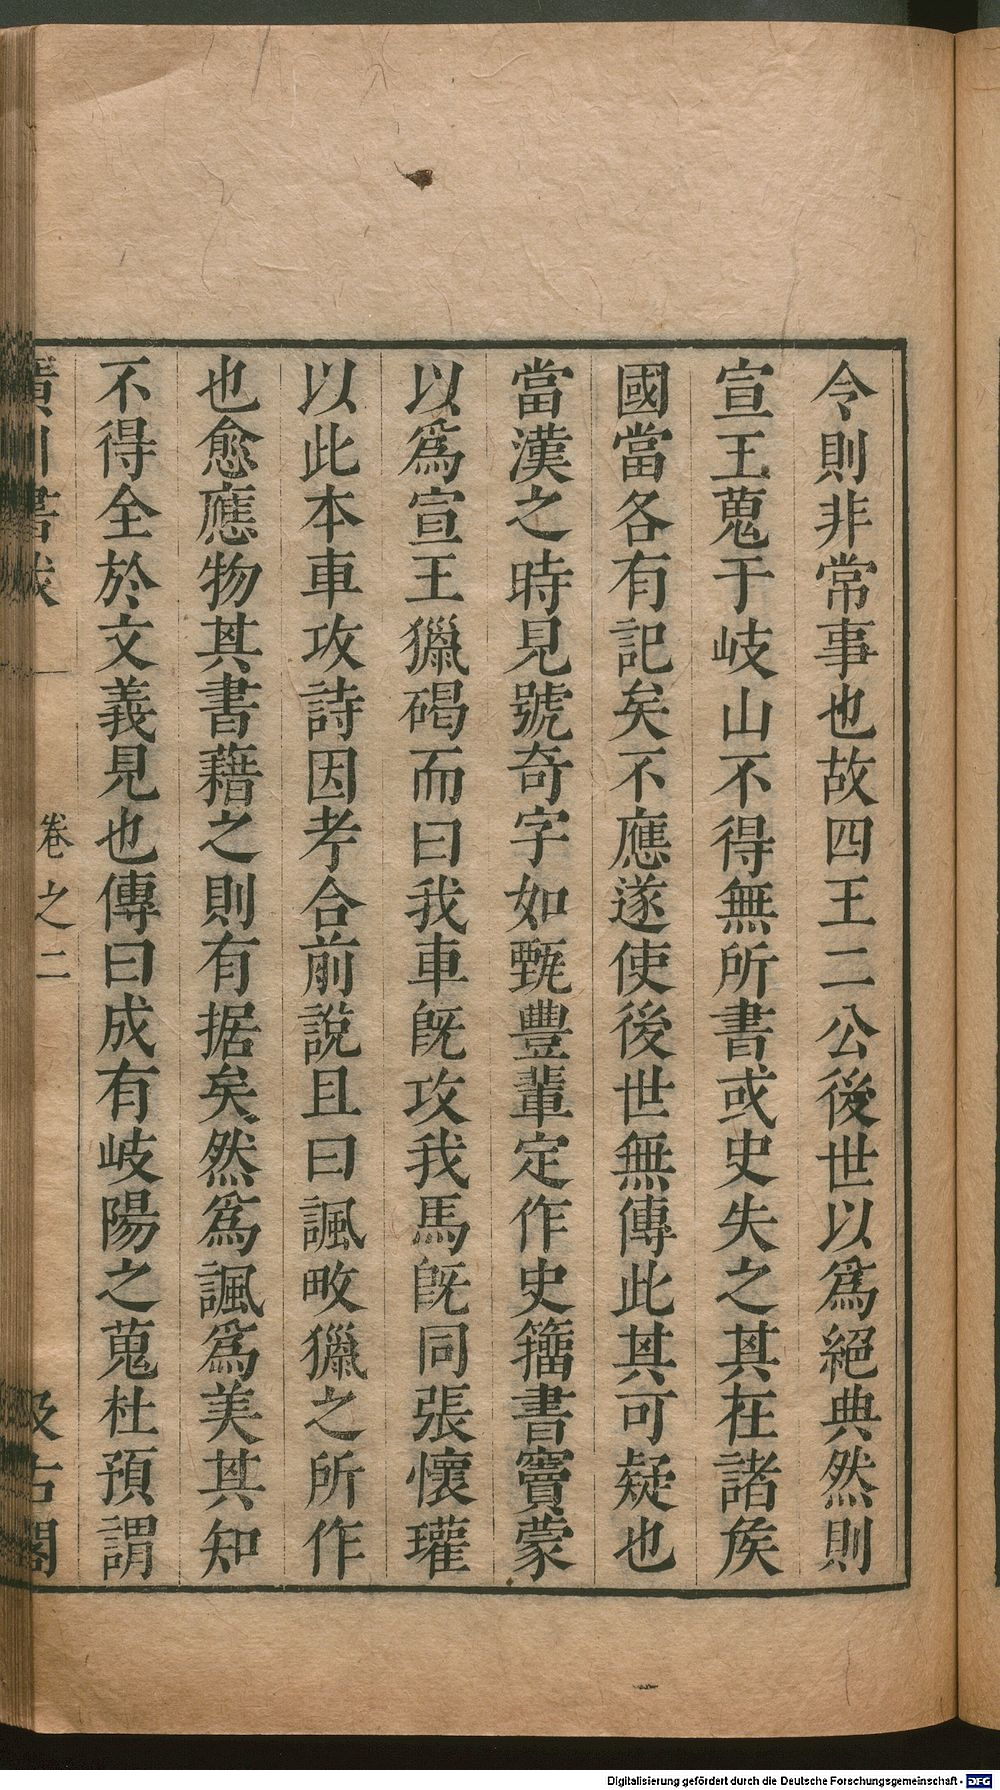 令則非常事也故四王二公後世以爲絕典然則
宣王蒐于岐山不得無所書或史失之其在諸矦
國當各有記矣不應遂使後世無傳此其可疑也
當漢之時見號奇字如甄豐輩定作史籀書竇蒙
以爲宣王獵碣而曰我車旣攻我馬旣同張懷瓘
以此本車攻詩因考合前說且曰諷畋獵之所作
也愈應物其書藉之則有据矣然爲諷爲美其知
不得全於文義見也傳曰成有岐陽之蒐杜預謂
廣川書跋
卷之二
汲古閣
Digitalisierung gefördert durch die Deutsche Forschungsgemeinschaft - DFG